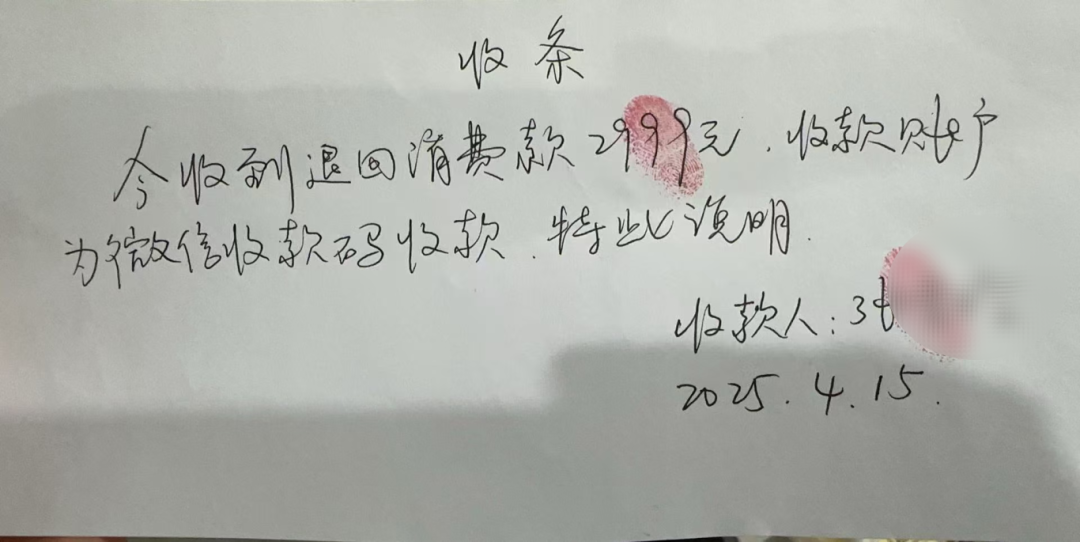 收条
今收到退回消费款2999元，收款账户
为微信收款码收款，特此说明.
收款人：张
2025.4.15.